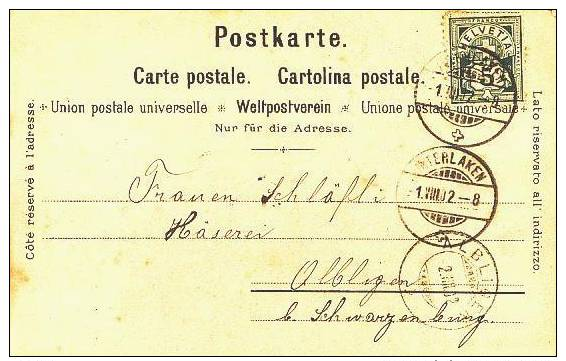 Postkarte.
HELVETIA
5
Carte postale. Cartolina postale.
Union postale universelle Weltpostverein Unione postale universale
Nur für die Adresse.
Côté réservé à l'adresse.
Lato riservato all' indirizzo.
INTERLAKEN
-1.VIII.02-8
Frauen Schläfli
Käserei
Albligen
b. Schwarzenburg.
ALBLIGEN
2.VIII.02